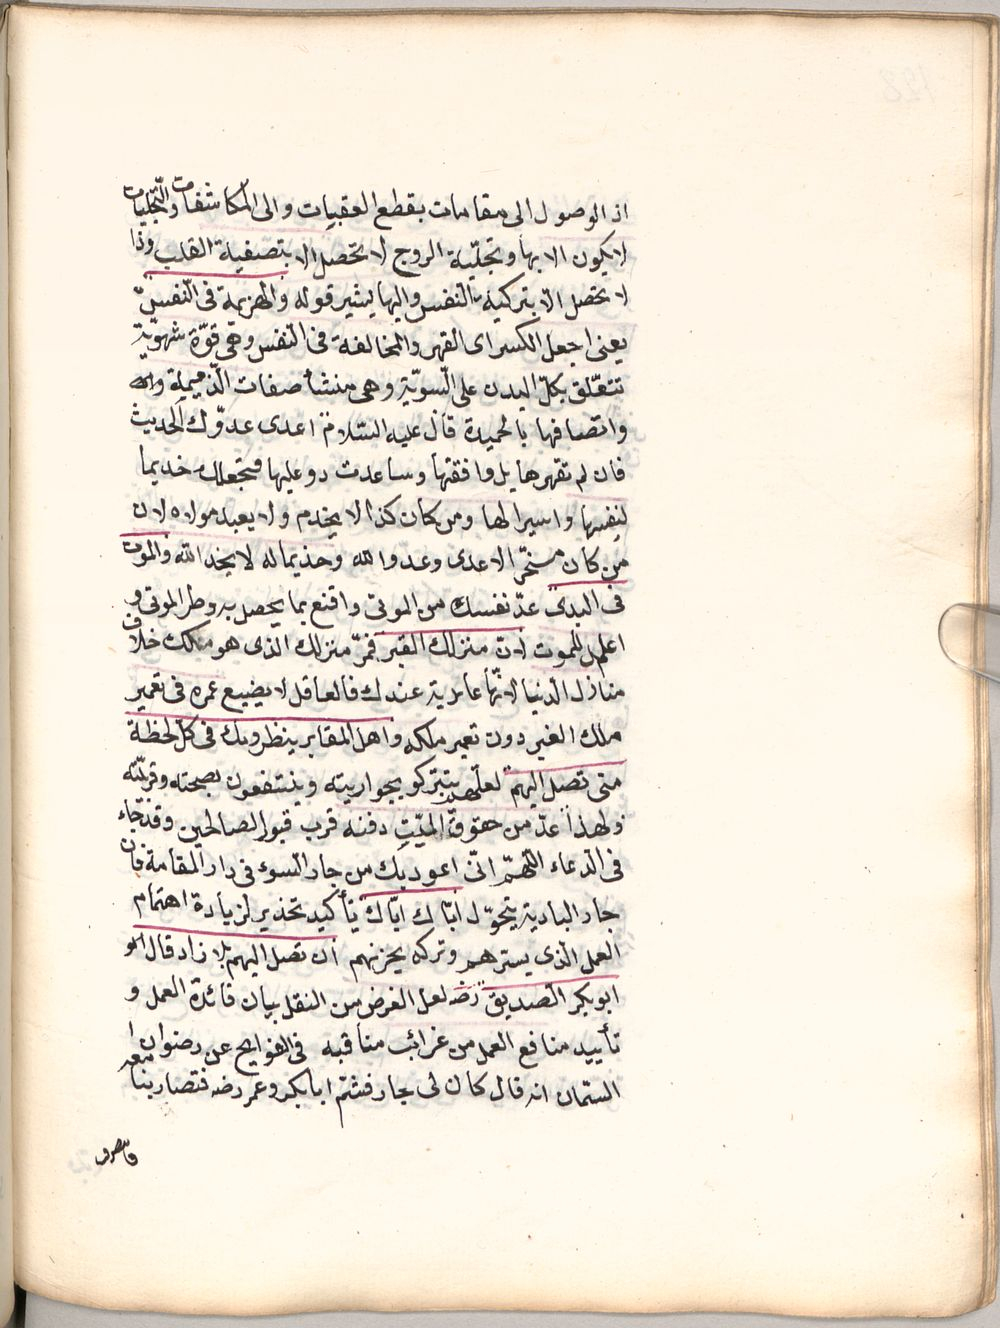 اذ الوصول الى مقامات بقطع العقبات والى المكاشفات والتجليات
لا يكون الا بها وتجلية الروح لا تحصل الا بتصفية القلب وذا
لا تحصل الا بتزكية النفس واليها يشير قوله والهزيمة في النفس
يعنى اجعل الكسر اى القهر والمخالفة فى النفس وهى قوّة شهويّة
تتعّلق بكلّ البدن على السّويّة وهى منشأ صفات الذّميمة
واتصافها بالحميدة قال عليه السّلام اعدى عدوّك الحديث
فان لم تقهرها بل وافقتها وساعدت دوعليها فتجعلك خديما
لنفسها واسيرا لها ومن كان كذا لا يخدم ولا يعبد مولاه لان
من كان مسخّر الاعدى وعدّوا لله وخذيما له لا يجد الله والموت
فى البدن عدّ نفسك من الموتى واقنع بما يحصل به وطر الموتى و
اعلم للموت لانّ منزلك القبر فمّر منزلك الذى هو ملكك خلاف
منازل الدنيا لانّها عارية عندك فالعاقل لا يضيع عمره فى تعمير
ملك الغير دون تعمير ملكه واهل المقابر ينظرونك فى كلّ لحظة
متى تصل اليهم لعلّهم يتبركو بجواريته وينتفعون بصحبته وقربته
ولهذا عدّ من حقوق الميّت دفنه قرب قبور الصالحين وقد جاء
فى الدّعاء اللّهمّ انّى اعوذ بك من جار السّوء فى دار المقامة فان
جار البادية يتحوّل ايّاك ايّاك تأكيد تحذير لزيادة اهتمام
العمل الذى يسترهم وتركه يحزنهم ان تصل اليهم بلا زاد قال
ابو بكر الصديق رضه لعل الغرض من النقل بيان فائدة العمل و
تأييد منافع العمل من غرائب مناقبه فى الفوايح عن رضوان
السّمان انه قال كان لى جار فشتم ابا بكر وعمر رضه فتضاربنا معه
فانصرف